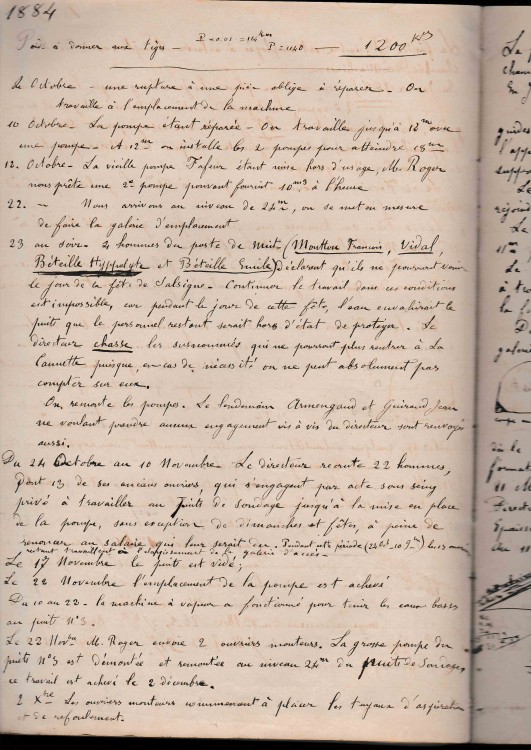 1884
P = 0.01 = 114 km
Poids à donner aux tiges — P = 1140 — 1200 K^s
Octobre - une rupture à une pièce oblige à réparer - On
travaille à l'emplacement de la machine
10 Octobre - La pompe étant réparée - On travaille jusqu'à 12^m avec
une pompe - A 12^m on installe les 2 pompes pour atteindre 18^m
12. Octobre - La vieille pompe Fafeur étant mise hors d'usage, Mr Roger
nous prête une 2e pompe pouvant fournir 10^m3 à l'heure
22. - Nous arrivons au niveau de 24^m, on se met en mesure
de faire la galerie d'emplacement
23 au soir - 4 hommes du poste de nuit (Mouthon François, Vidal,
Béteille Hyppolyte et Béteille Emile) déclarent qu'ils ne pourront venir
le jour de la fête de Salsigne - Continuer le travail dans ces conditions
est impossible, car pendant le jour de cette fête, l'eau envahirait le
puits que le personnel restant serait hors d'état de protéger. Le
directeur chasse les susnommés qui ne pourront plus rentrer à La
Caunette puisque, en cas de nécessité on ne peut absolument pas
compter sur eux.
On remonte les pompes. Le lendemain Armengaud et Guiraud Jean
ne voulant prendre aucun engagement vis à vis du directeur sont renvoyés
aussi.
Du 24 Octobre au 10 Novembre - Le directeur recrute 22 hommes,
Dont 13 de ses anciens ouvriers, qui s'engagent par acte sous seing
privé à travailler au Puits de Sondage jusqu'à la mise en place
de la pompe, sans exception de dimanches et fêtes, à peine de
renoncer au salaire qui leur serait dû. Pendant cette période (24 8bre - 10 9bre) les
travaillent à l'élargissement de la galerie d'accès -
Le 17 Novembre le puits est vidé ;
Le 22 Novembre l'emplacement de la pompe est achevé
Du 10 au 22 - la machine à vapeur a fonctionné pour tenir les eaux basses
au puits N°3.
Le 22 Nov^bre M. Roger envoie 2 ouvriers monteurs. La grosse pompe du
puits N°3 est démontée et remontée au niveau 24^m du puits de Sondage,
ce travail est achevé le 2 décembre.
2 X^bre Les ouvriers monteurs commencent à placer les tuyaux d'aspiration
et de refoulement.